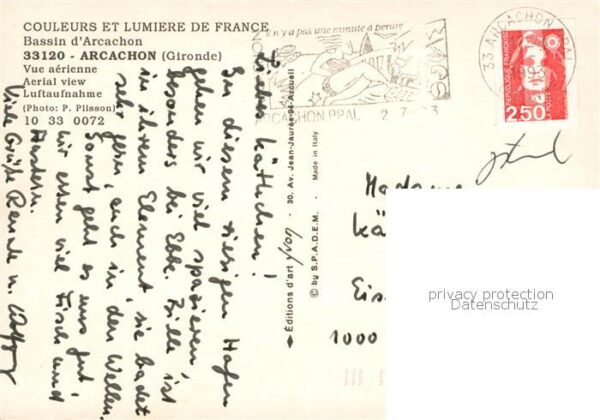 COULEURS ET LUMIERE DE FRANCE
Bassin d'Arcachon
33120 - ARCACHON (Gironde)
Vue aérienne
Aerial view
Luftaufnahme
(Photo: P. Plisson)
10 33 0072
Il n'y a pas une minute à perdre
ARCACHON PPAL
2-7-
33 ARCACHON PPAL
REPUBLIQUE FRANÇAISE
2,50
LA POSTE
Éditions d'art yvon - 30, Av. Jean-Jaurès 94-Arcueil
© by S.P.A.D.E.M. - Made in Italy
Liebes Kätchen!
In diesem riesigen Hafen
gehen wir viel spazieren,
besonders bei Ebbe. Bille ist
in ihrem Element, sie badet
sehr gern, auch in den Wellen.
Sonst geht es uns gut!
Wir essen viel Fisch und
Austern.
Viele Grüße Renate u.
Madame
Kä
Eis
1000
privacy protection
Datenschutz